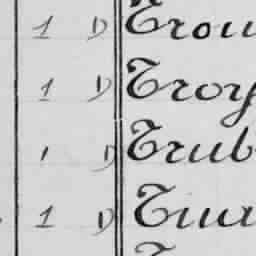 1 D Trou
1 D Troy
1 D Trub
1 D